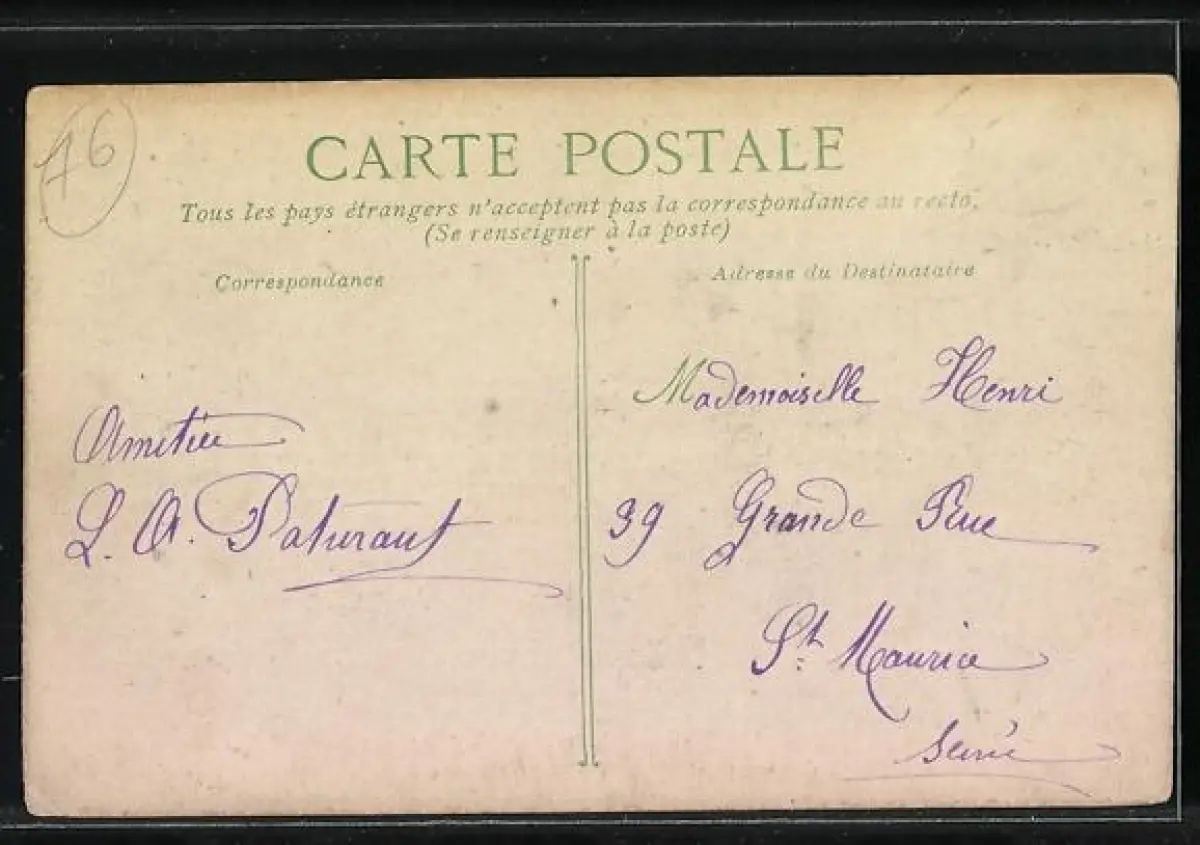 76
CARTE POSTALE
Tous les pays étrangers n'acceptent pas la correspondance au recto,
(Se renseigner à la poste)
Correspondance
Adresse du Destinataire
Amitiée
L. A. Paturaut
Mademoiselle Henri
39 Grande Rue
St. Maurice
Seine